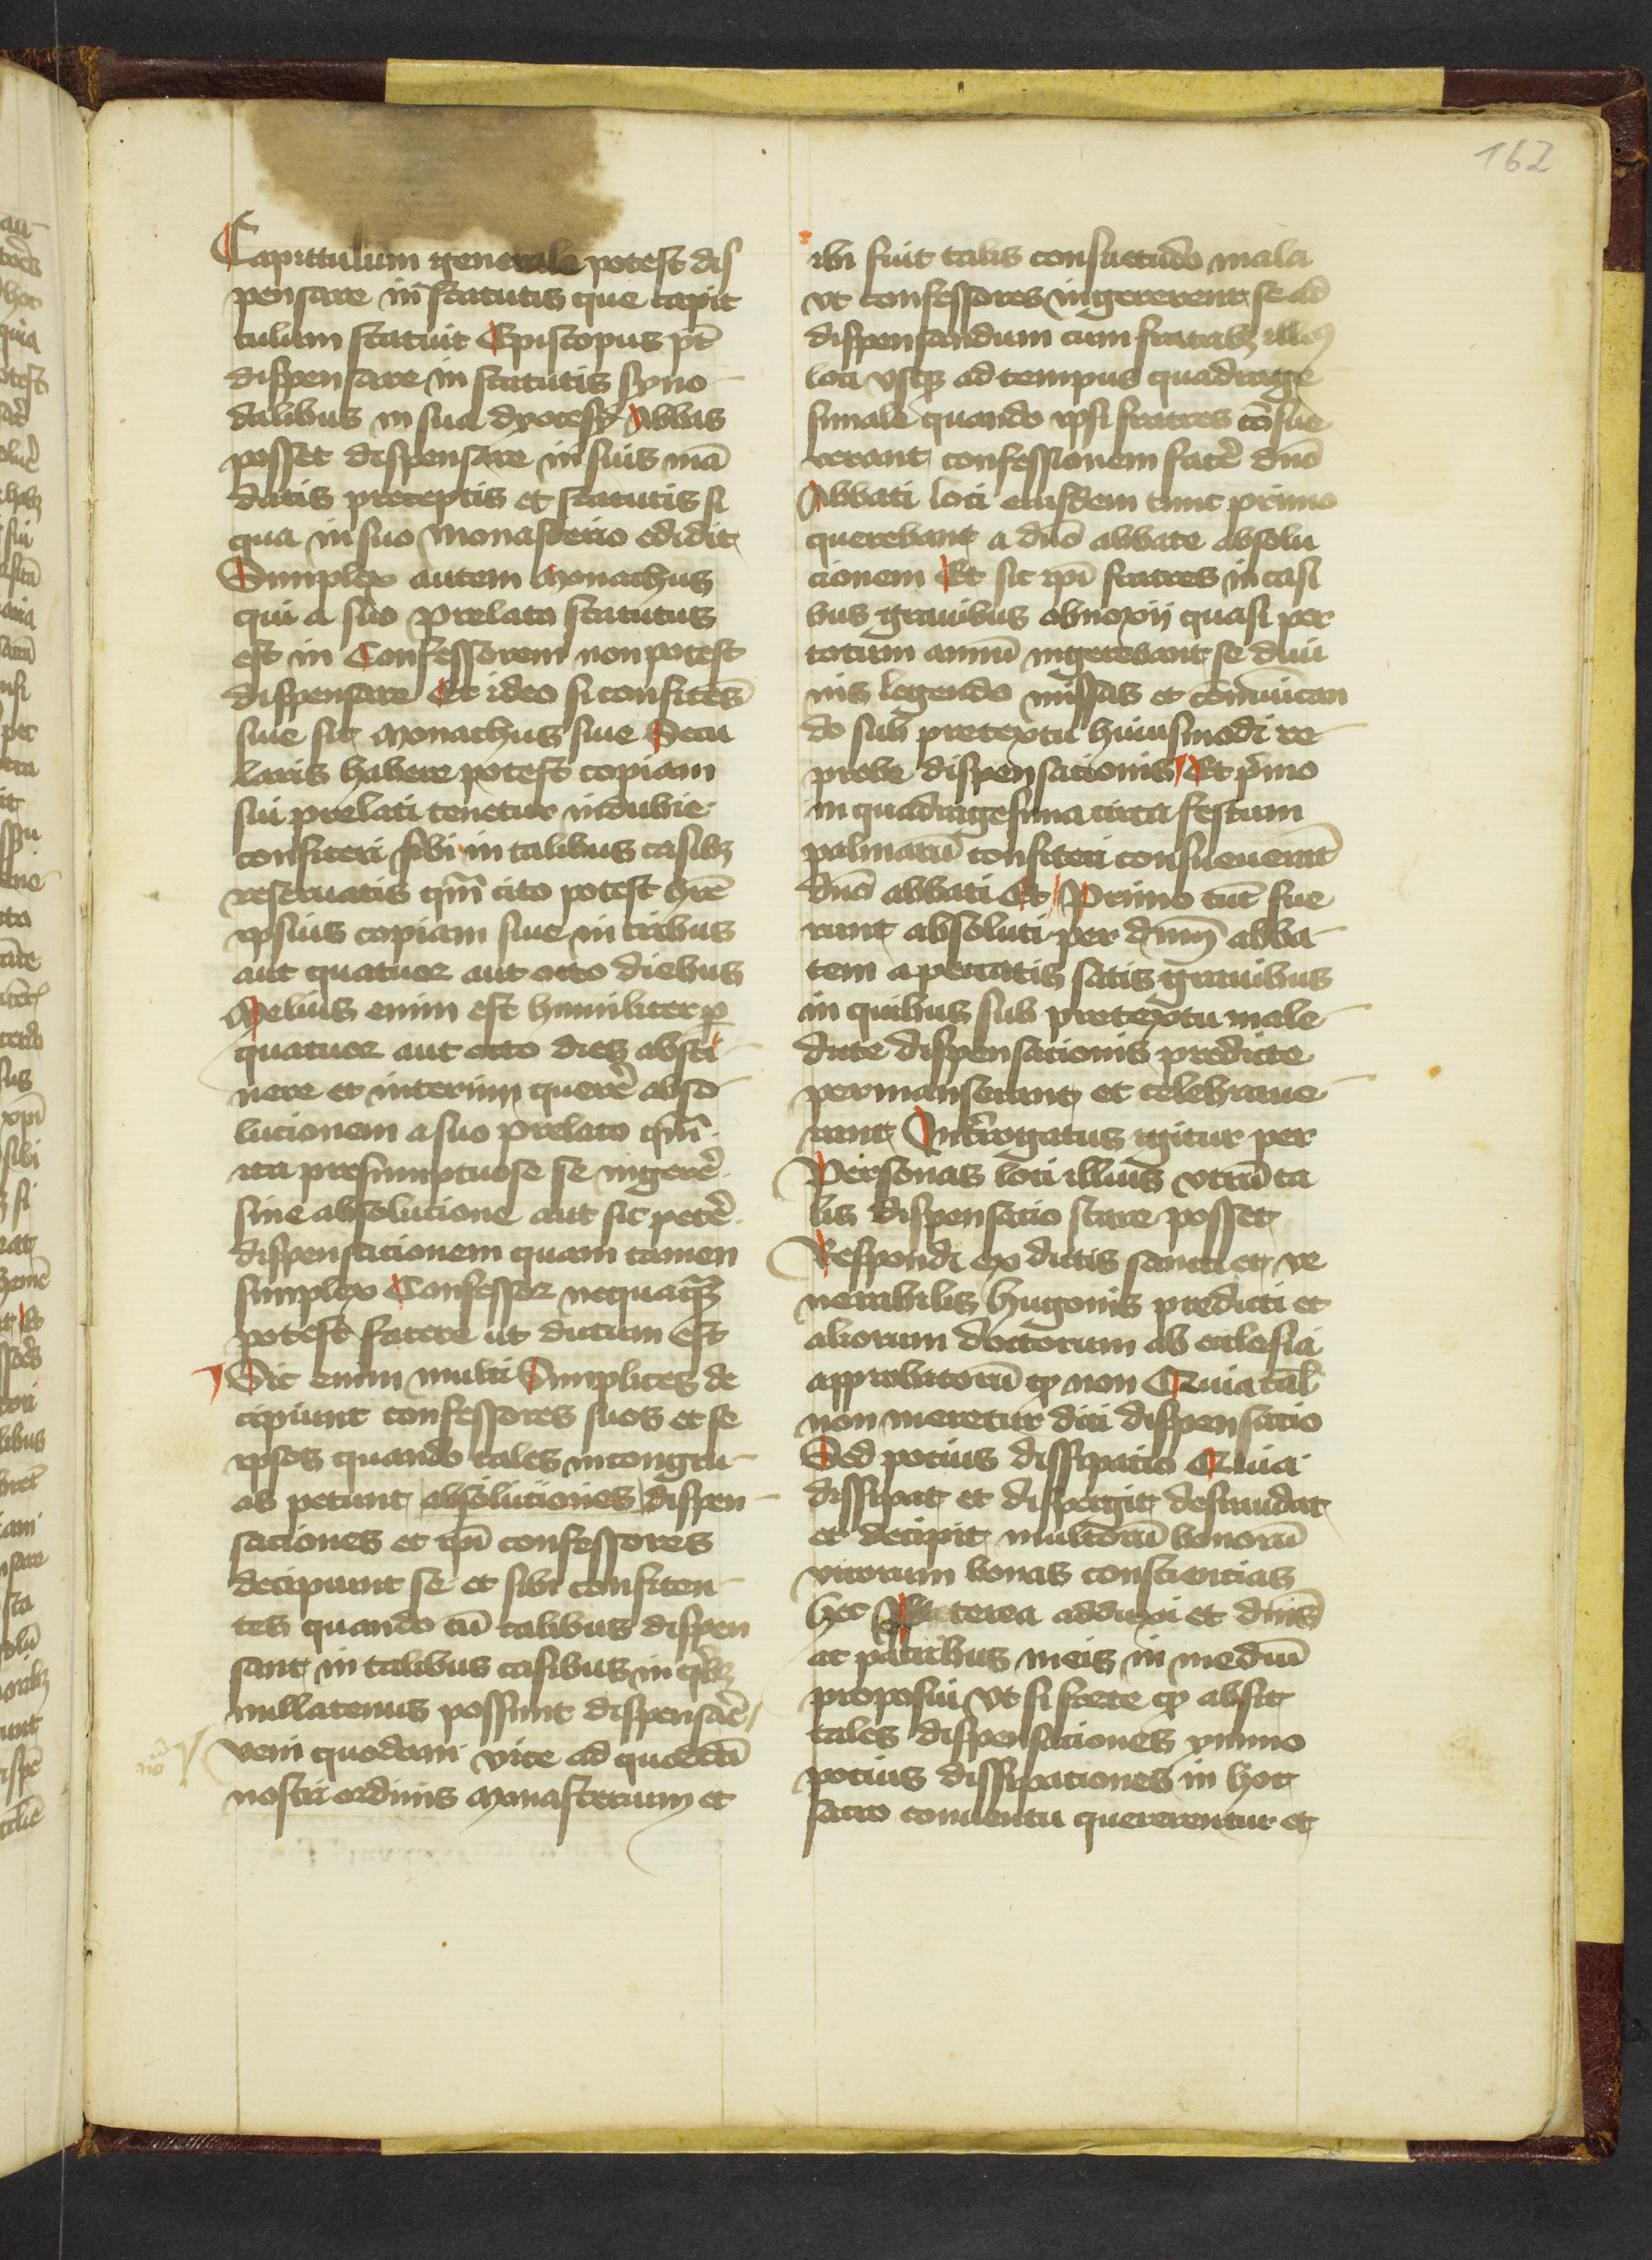 162
Capittulum generale potest dis
pensare in statutis que capit
tulum statuit Episcopus pt̄
dispensare in statutis syno
dalibus in sua dyocesi Abbas
posset dispensare in suis mā
datis preceptis et statutis si
qua in suo monasterio edidit
Simplex autem monachus
qui a suo prelato statutus
est in Confessorem non potest
dispensare Et ideo si confitēs
siue sit monachus siue Secu
laris habere potest copiam
sui prelati tenetur indubie
confiteri sibi in talibus casibꝫ
reseruatis qm̄ cito potest hr̄e
ipsius copiam siue in tribus
aut quatuor aut octo diebus
Melius enim est humiliter ꝑ
quatuor aut octo dies absti
nere et interim querē abso
lucionem a suo prelato qm̄
ita presumptuose se ingerē
sine absolucione aut sic petē
dispensacionem quam tamen
simplex Confessor nequaqȝ
potest facere ut dictum est
Sic enim multi Simplices de
cipiunt confessores suos et se
ipsos quando tales incongru
as petunt absoluciones dispen
saciones et ip̄i confessores
decipiunt se et sibi confiten
tes quando cū talibus dispen
sant in talibus casibus in qͥbꝫ
nullatenus possunt dispensarē
Veni quodam vice ad quoddā
nostri ordinis monasterium et
ibi fuit talis consuetudo mala
vt confessores ingererent se ad
dispensandum cum fratribꝫ illiꝰ
loci vsqꝫ ad tempus quadrage
simale quando ipsi fratres cōsue
verant confessionem facē dn̄o
Abbati loci eiusdem tunc primo
querebant a dn̄o abbate absolu
cionem Et sic ip̄i fratres in casi
bus grauibus obnoxij quasi per
totum annū ingerebant se diui
nis legendo missas et cōmūican
do sub pretextu huiusmodi re
probe dispensacionis Et pͥmo
in quadragesima circa festum
palmarū confiteri consueuerāt
dn̄o abbati Et Primo tūc fue
runt absoluti per dnm̄ abba
tem a peccatis satis grauibus
in quibus sub pretextu male
dicte dispensacionis predicte
permanserunt et celebraue
runt Interrogatus igitur per
Personas loci illius vtrū ta
lis dispensacio stare posset
Respondi ex dictis sancti et ve
nerabilis Hugonis predicti et
aliorum doctorum ab ecclesia
approbatorū qꝫ non Quia tal̄
non meretur dici dispensacio
Sed pocius dissipacio Quia
dissipat et dispergit defraudat
et decipit multorū bonorū
virorum bonas consciencias
hec Preterea adduxi et dn̄is
ac patribus meis in mediū
proposui vt si forte qꝫ absit
tales dispensaciones ymmo
pocius dissipaciones in hoc
sacro conuentu quererentur et